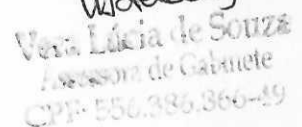 Vera Lúcia de Souza
Assessora de Gabinete
CPF: 556.386.866-49